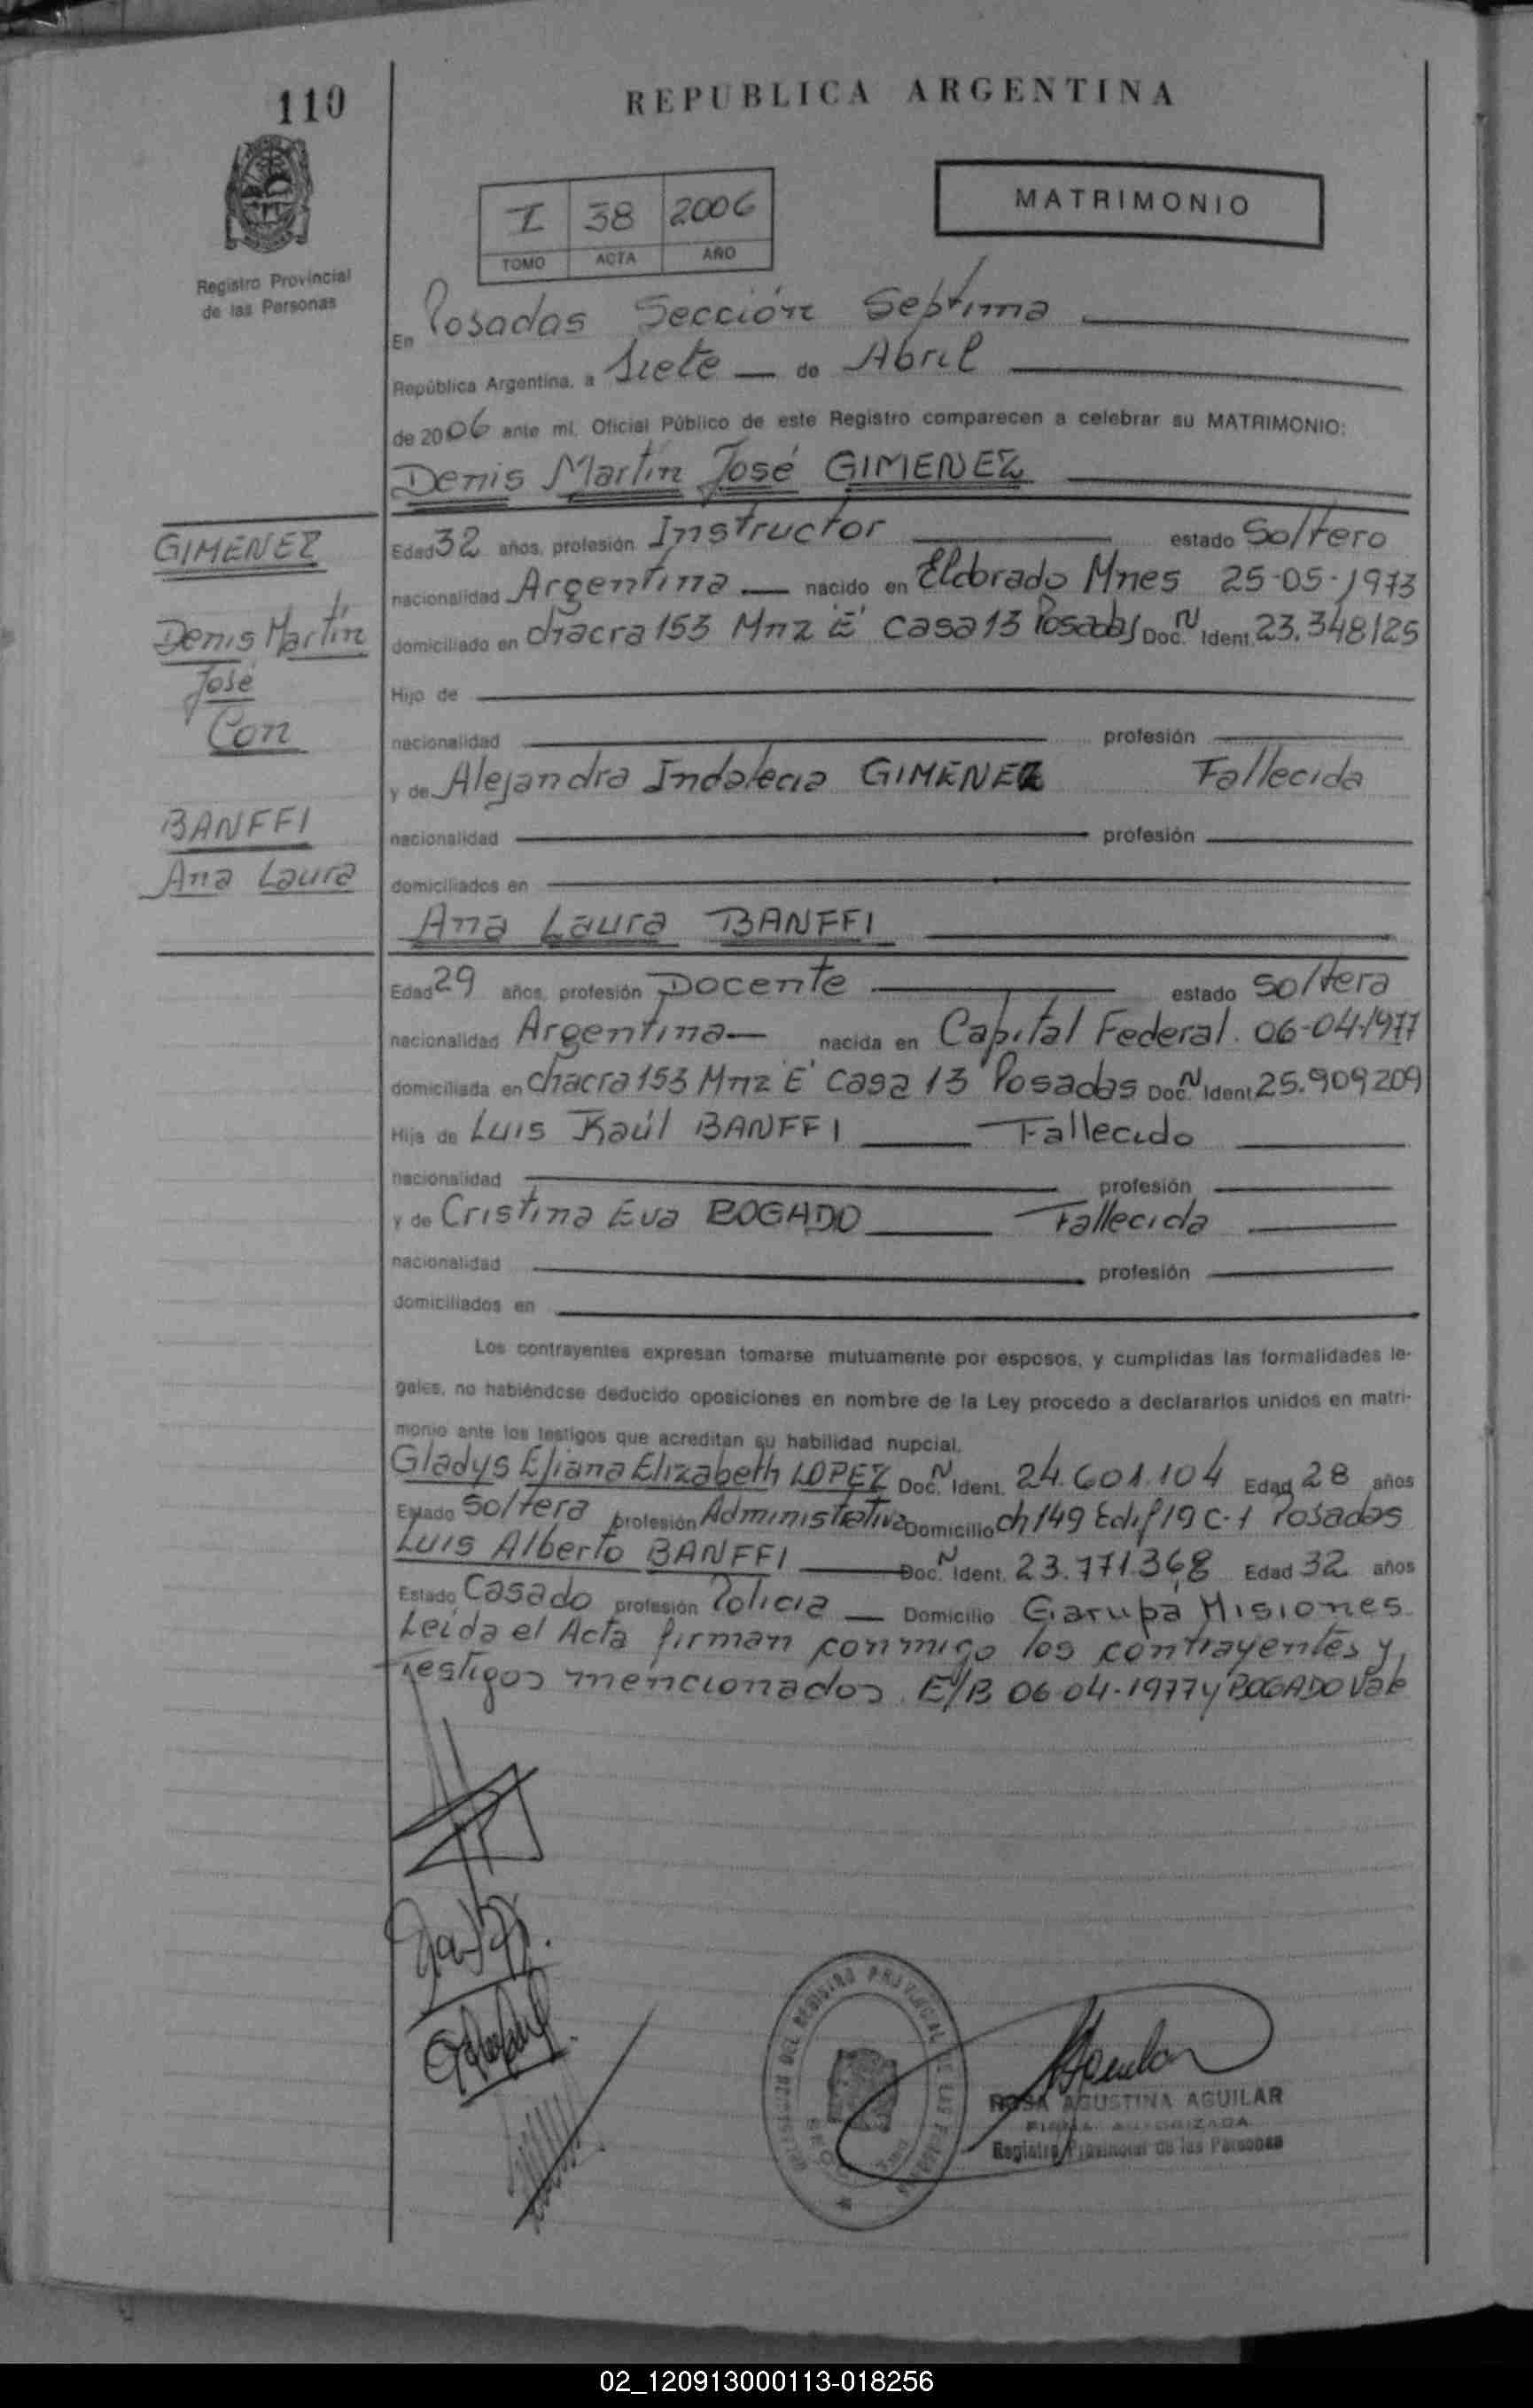 110
REPUBLICA ARGENTINA
MATRIMONIO
I 38 2006
TOMO ACTA AÑO
Registro Provincial
de las Personas
En Posadas Sección Septima
República Argentina, a Siete de Abril
de 2006 ante mi, Oficial Público de este Registro comparecen a celebrar su MATRIMONIO:
Denis Martín José GIMENEZ
GIMENEZ
Denis Martín
José
Con
BANFFI
Ana Laura
Edad 32 años, profesión Instructor estado Soltero
nacionalidad Argentina nacido en Eldorado Mnes 25-05-1973
domiciliado en chacra 153 Mnz "E" casa 13 Posadas Doc. N Ident. 23.348125
Hijo de
nacionalidad profesión
y de Alejandra Indalecia GIMENEZ Fallecida
nacionalidad profesión
domiciliados en
Ana Laura BANFFI
Edad 29 años, profesión Docente estado Soltera
nacionalidad Argentina nacida en Capital Federal. 06-04-1977
domiciliada en chacra 153 Mnz "E" Casa 13 Posadas Doc. N Ident. 25.909209
Hija de Luis Raúl BANFFI Fallecido
nacionalidad profesión
y de Cristina Eva BOGADO Fallecida
nacionalidad profesión
domiciliados en
Los contrayentes expresan tomarse mutuamente por esposos, y cumplidas las formalidades le-
gales, no habiéndose deducido oposiciones en nombre de la Ley procedo a declararlos unidos en matri-
monio ante los testigos que acreditan su habilidad nupcial.
Gladys Eliana Elizabeth LOPEZ Doc. N Ident. 24.601.104 Edad 28 años
Estado Soltera profesión Administrativa Domicilio ch 149 Edif 19 C-1 Posadas
Luis Alberto BANFFI Doc. N Ident. 23.771.368 Edad 32 años
Estado Casado profesión Policia Domicilio Garupá Misiones
Leída el Acta firman conmigo los contrayentes y
Testigos mencionados. E/B 06-04-1977 y BOGADO Vale
ROSA AGUSTINA AGUILAR
FIRMA AUTORIZADA
Registro Provincial de las Personas
02_120913000113-018256